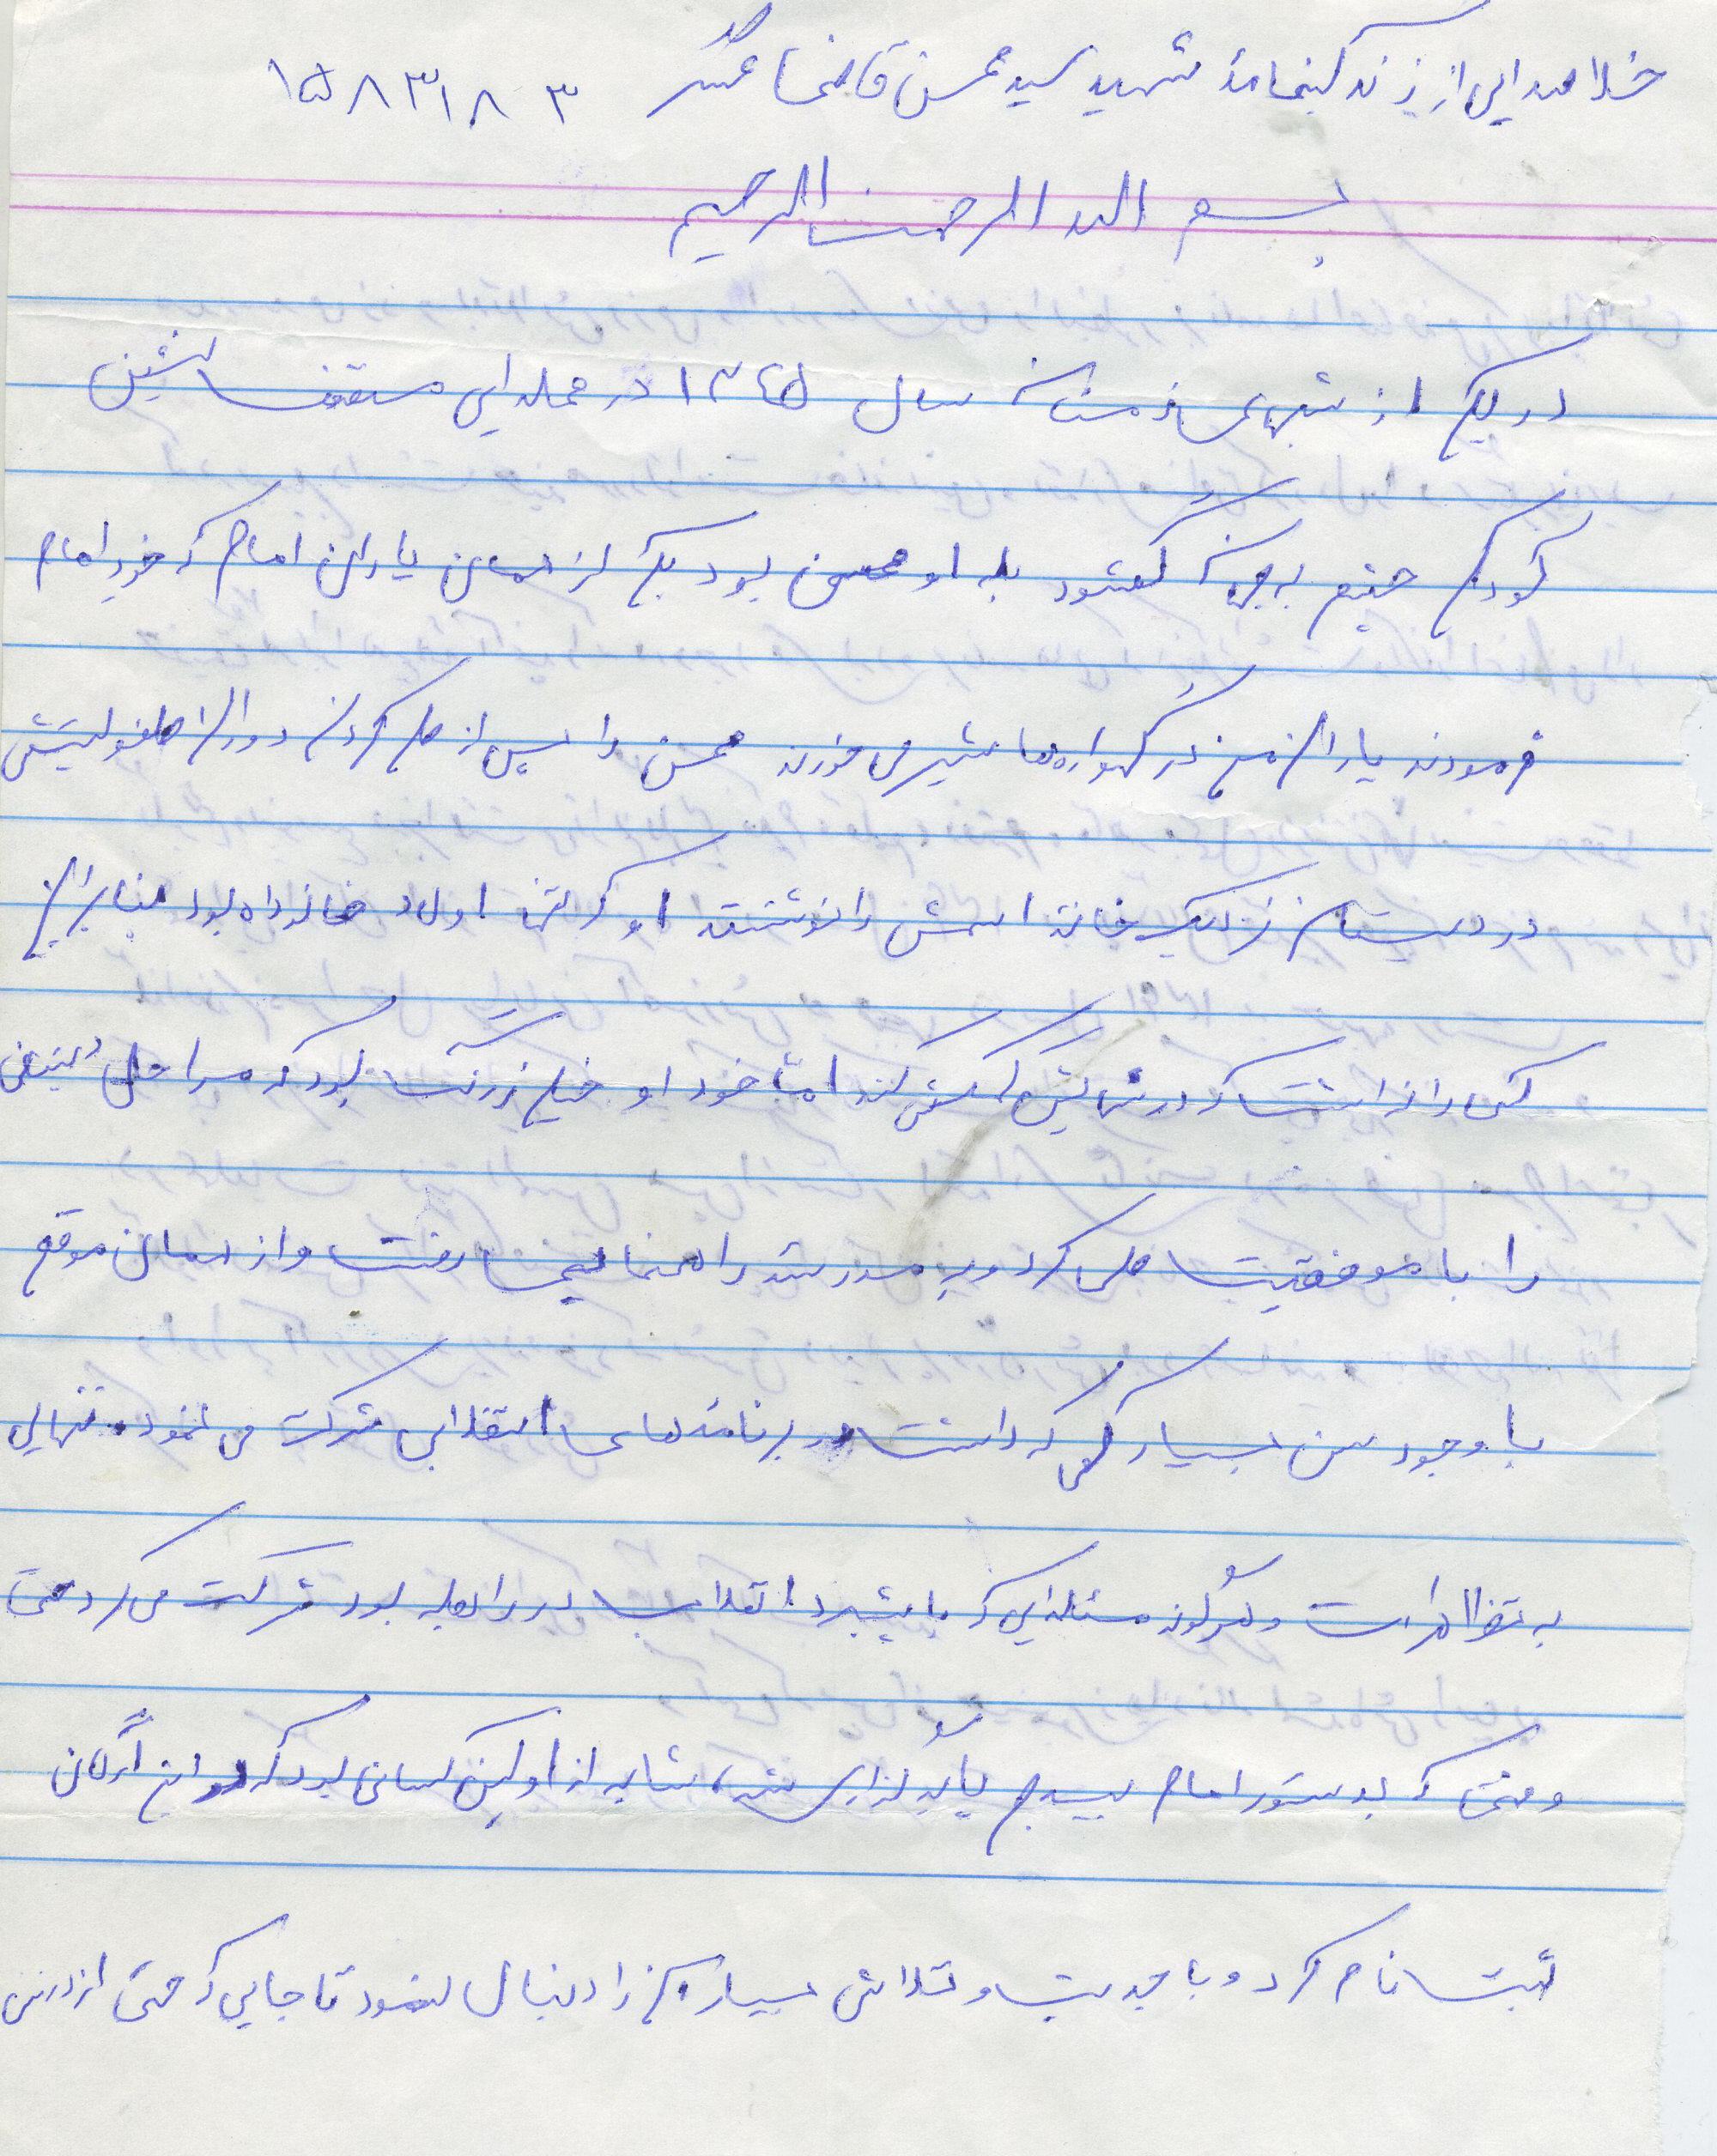 خلاصه‌ایی از زندگینامهٔ شهید سید محسن قاضی عسگر ۱۵۸۳۱۸۳
بسم الله الرحمن الرحیم
در یکی از شبهای زمستان سال ۱۳۴۵ در محله‌ایی مستضعف نشین
کودکی چشم به جهان گشود بله او محسن بود یکی از همان یاران امام که خود امام
فرمودند یاران من در گهواره‌ها شیر می‌خورند محسن را پس از طی کردن دوران طفولیتش
در دبستان نزدیک خانه اسمش را نوشتند او که تنها اولاد خانواده بود بنابراین
کسی را نداشت که در درسهایش کمکش کند اما خود او خیلی زرنگ بود که مراحل دبستان
را با موفقیت طی کرد و به مدرسه راهنمایی رفت و از همان موقع
با وجود سن بسیار کمی که داشت در برنامه‌های انقلابی شرکت می نمود تنهایی
به تظاهرات و هرگونه مسئله‌ایی که با پیشبرد انقلاب در رابطه بود شرکت می کرد حتی
وقتی که بدستور امام بسیج پایه گذاری شد، شاید از اولین کسانی بود که در این ارگان
ثبت نام کرد و با جدیت و تلاش بسیار آن را دنبال نمود تا جایی که حتی از درس